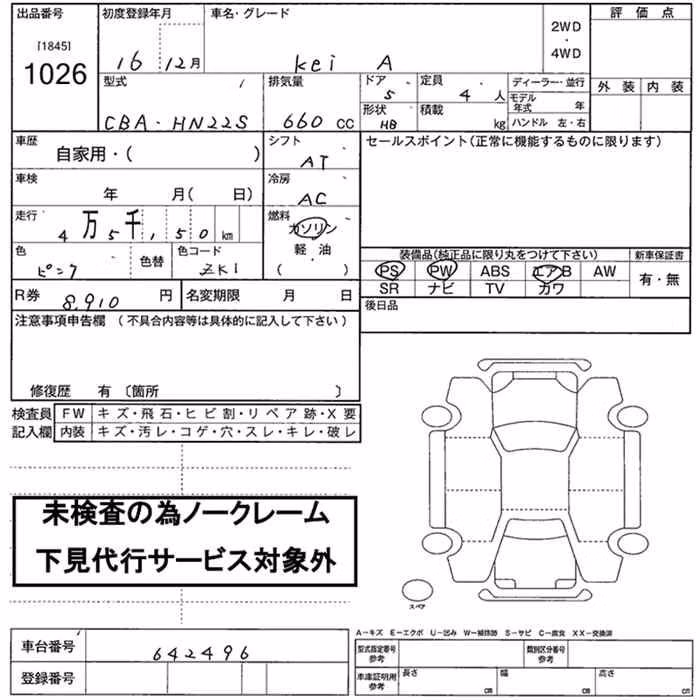 出品番号
[1845]
1026
初度登録年月
16 12月
車名・グレード
kei A
2WD
・
4WD
評価点
外装 内装
型式
CBA-HN22S
排気量
660 CC
ドア
5
形状
HB
定員
4人
積載
kg
ディーラー・並行
モデル年式 年
ハンドル 左・右
車歴
自家用・( )
シフト
AT
セールスポイント(正常に機能するものに限ります)
車検
年 月( 日)
冷房
AC
走行
4万5千,150km
燃料
ガソリン
軽・油
( )
色
ピンク
色替
色コード
ZK1
装備品(純正品に限り丸をつけて下さい)
新車保証書
PS PW ABS エアB AW
有・無
SR ナビ TV カワ
R券
8,910円
名変期限 月 日
後日品
注意事項申告欄 (不具合内容等は具体的に記入して下さい)
修復歴 有〔箇所 〕
検査員 FW キズ・飛石・ヒビ割・リペア跡・X要
記入欄 内装 キズ・汚レ・コゲ・穴・スレ・キレ・破レ
未検査の為ノークレーム
下見代行サービス対象外
スペア
A−キズ E−エクボ U−凹み W−補修跡 S−サビ C−腐食 XX−交換済
車台番号
642496
登録番号
型式指定番号
参考
類別区分番号
参考
車庫証明用
参考
長さ cm
幅 cm
高さ cm